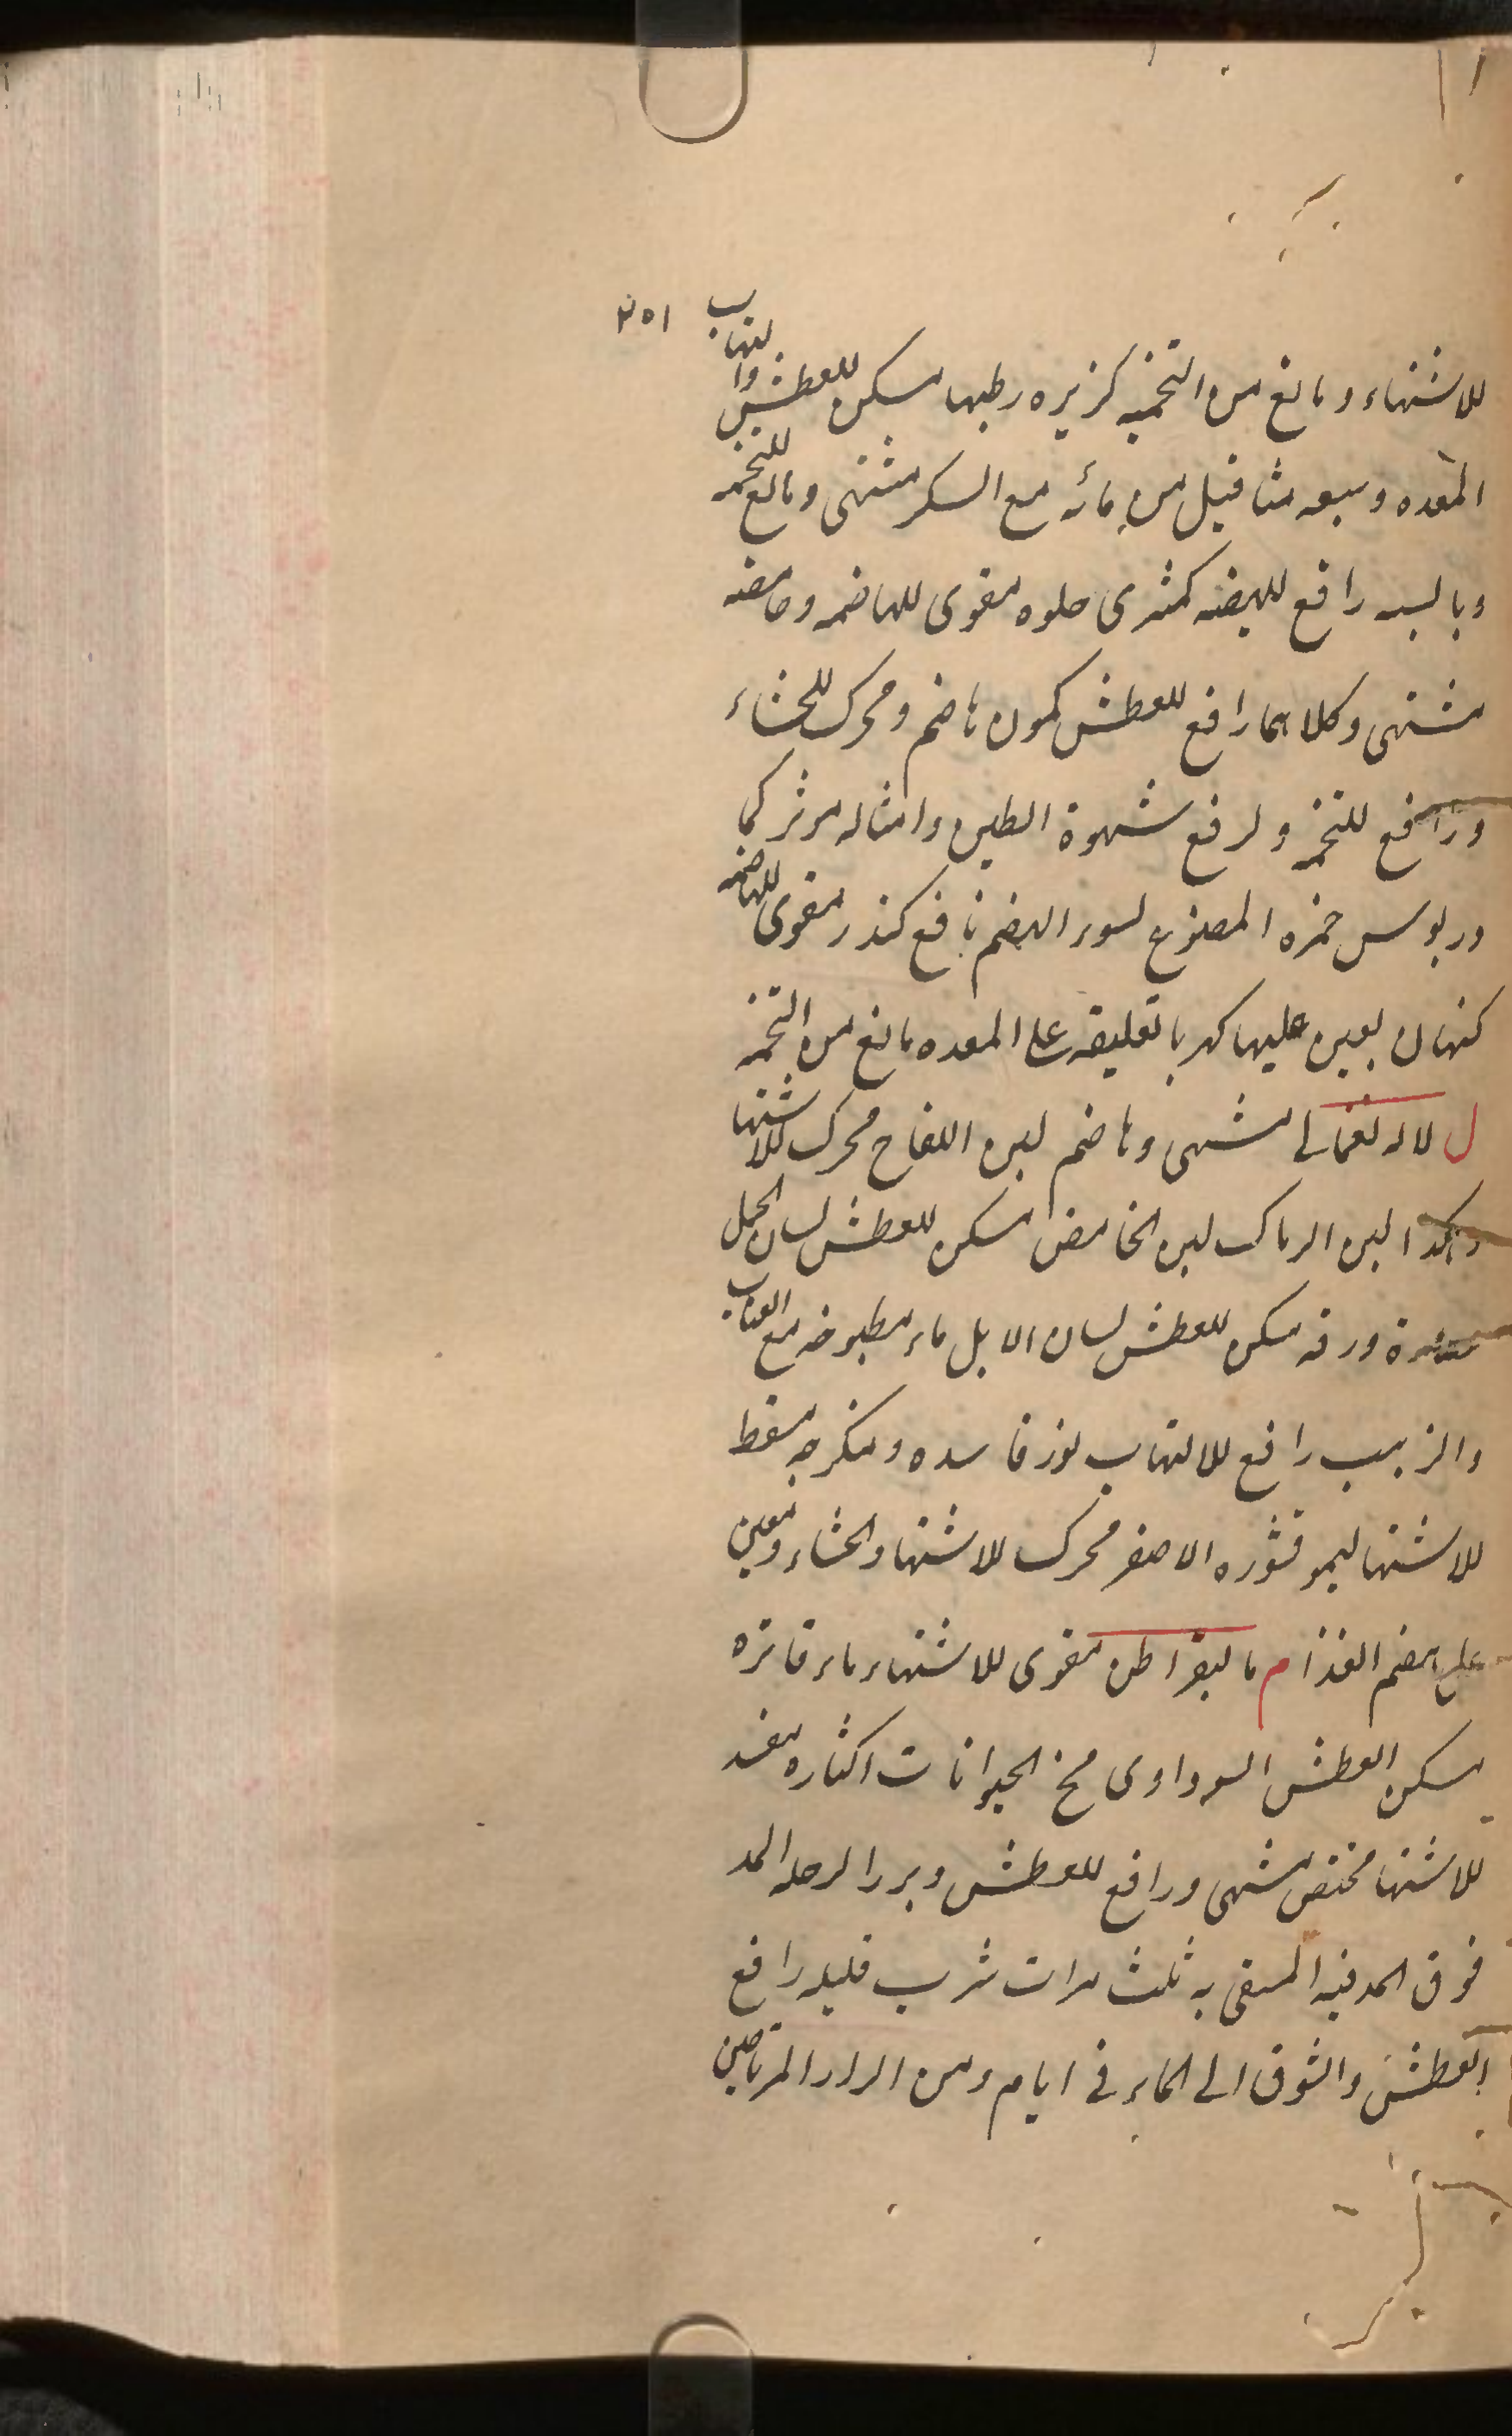 ٢٥١
للاشتهاء ومانع من التخمه كزبره رطبها مسكن للعطش والتهاب
المعده وسبعه مثاقيل من مائه مع السكر مشتهى ومانع للتخمه
ويابسه رافع للهيضه كمثرى حلوه مقوى للهاضمه وحامضه
مشتهى وكلاهما رافع للعطش كمون هاضم ومحرك للجشاء
ورافع للتخمه ولرفع شهوة الطين وامثاله موثر كما
خمزه المصنوع لسوء الهضم نافع كندر مقوى للهاضمه
يعين عليها كهربا تعليقه على المعده مانع من التخمه
ل لاله نعمانى مشهى وهاضم لبن اللقاح محرك للاشتها
وهكذا لبن الرماك لبن الحامض مسكن للعطش لسان الحمل
ورقه مسكن للعطش لسان الابل ماء مطبوخه مع العناب
والزبيب رافع للالتهاب لوز فاسده ومتكرجه مسقط
للاشتها ليمو قشوره الاصفر محرك للاشتها والجشاء ومعين
على هضم الغذا م ماليقراطن مقوى للاشتهاء ماء فاتره
مسكن العطش السوداوى مخ الحيوانات اكثاره مفسد
للاشتها مشهى ورافع للعطش
فوق المسقى به ثلث مرات شرب قليله رافع
العطش والشوق الى الماء فى ايام ومن